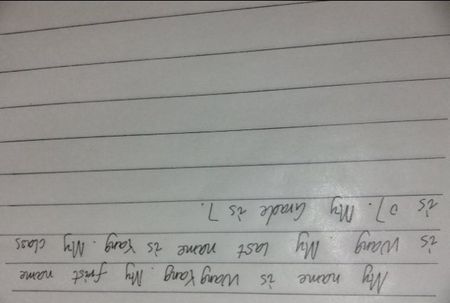 My name is Wang Yang. My first name
is Wang. My last name is Yang. My class
is 07. My Grade is 7.